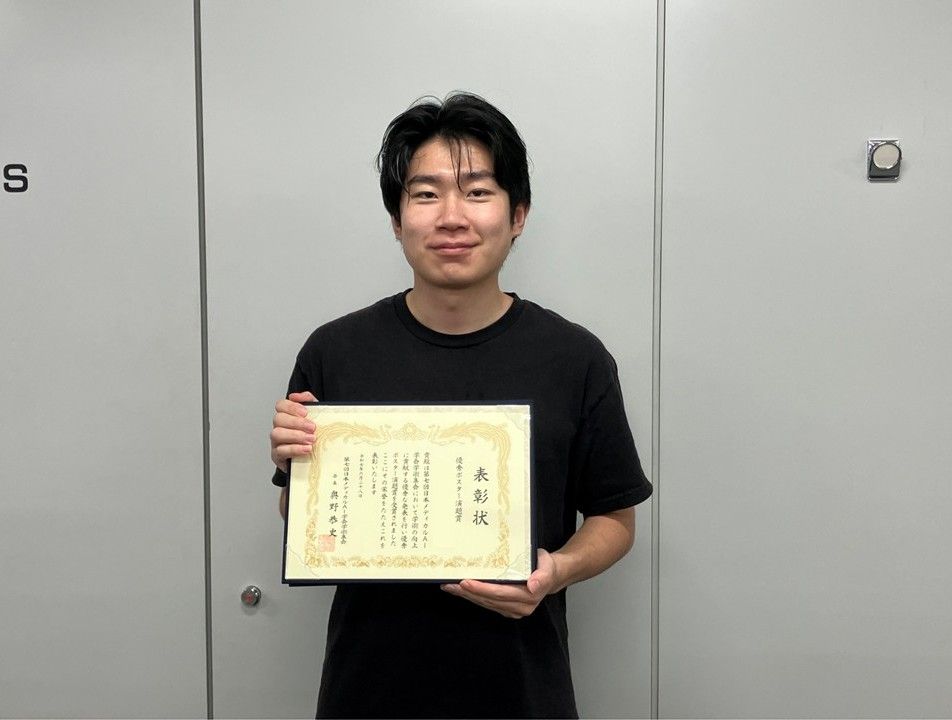 S
表彰状
優秀ポスター演題賞
貴殿は第七回日本メディカルAI
学会学術集会において学術の向上
に貢献する優秀な発表を行い優秀
ポスター演題賞を受賞されました
ここにその栄誉をたたえこれを
表彰いたします
令和七年六月二十八日
第七回日本メディカルAI学会学術集会
会長 奥野恭史